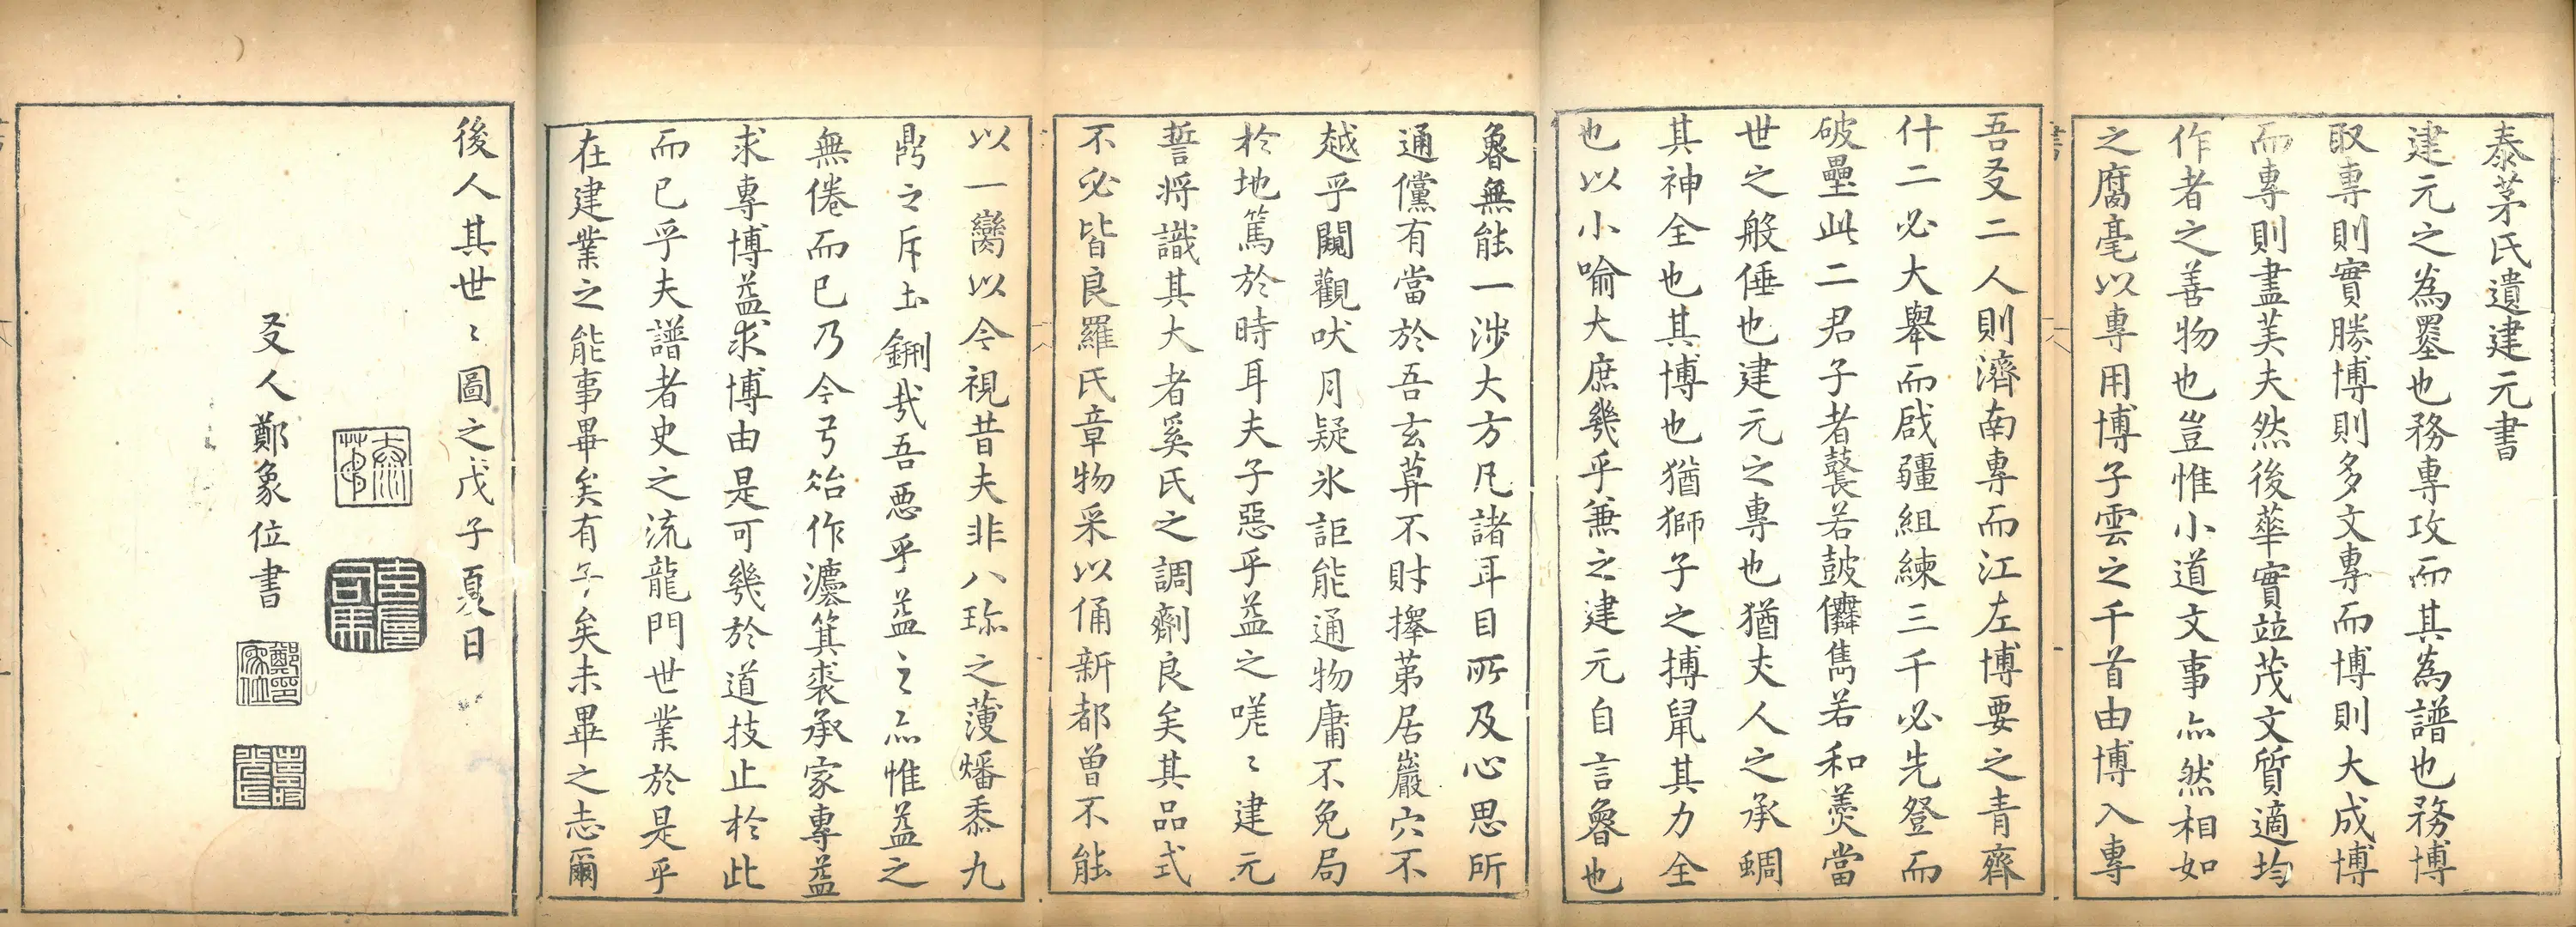 泰茅氏遺建元書
建元之為墨也務專攻而其為譜也務博
取專則實勝博則多文專而博則大成博
而專則盡美夫然後華實竝茂文質適均
作者之善物也豈惟小道文事亦然相如
之腐毫以專用博子雲之千首由博入專
吾友二人則濟南專而江左博要之青齊
什二必大舉而啟疆組練三千必先登而
破壘此二君子者鼚若鼓儛雋若和羹當
世之般倕也建元之專也猶丈人之承蜩
其神全也其博也猶獅子之搏鼠其力全
也以小喻大庶幾乎兼之建元自言魯也
魯無能一涉大方凡諸耳目所及心思所
通儻有當於吾玄算不財擇第居巖穴不
越乎闚觀吠月疑氷詎能通物庸不免局
於地篤於時耳夫子惡乎益之嘆〻建元
誓將識其大者奚氏之調劑良矣其品式
不必皆良羅氏章物采以俑新都曾不能
以一臠以今視昔夫非八珎之蓡燔黍九
鼎之斥土鉶哉吾惡乎益之亦惟益之
無倦而已乃今弓冶作灋箕裘承家專益
求專博益求博由是可幾於道技止於此
而已乎夫譜者史之流龍門世業於是乎
在建業之能事畢矣有子矣未畢之志爾
後人其世〻圖之戊子夏日
友人鄭象位書